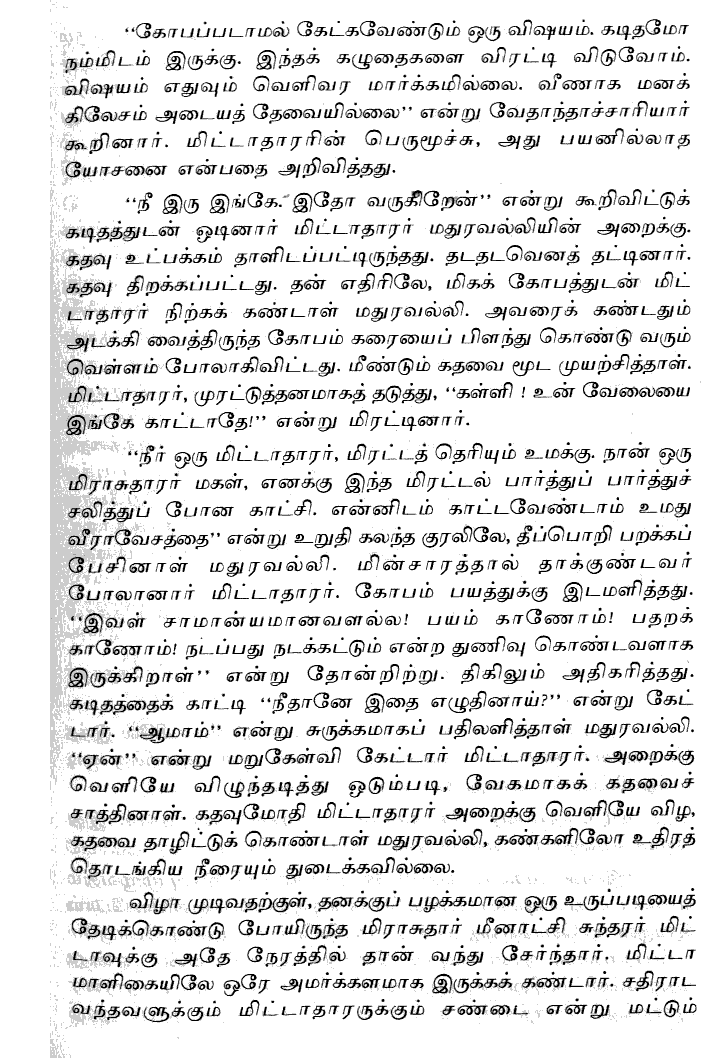 “கோபப்படாமல் கேட்கவேண்டும் ஒரு விஷயம். கடிதமோ
நம்மிடம் இருக்கு. இந்தக் கழுதைகளை விரட்டி விடுவோம்.
விஷயம் எதுவும் வெளிவர மார்க்கமில்லை. வீணாக மனக்
கிலேசம் அடையத் தேவையில்லை” என்று வேதாந்தாச்சாரியார்
கூறினார். மிட்டாதாரரின் பெருமூச்சு, அது பயனில்லாத
யோசனை என்பதை அறிவித்தது.
“நீ இரு இங்கே. இதோ வருகிறேன்” என்று கூறிவிட்டுக்
கடிதத்துடன் ஓடினார் மிட்டாதாரர் மதுரவல்லியின் அறைக்கு.
கதவு உட்பக்கம் தாளிடப்பட்டிருந்தது. தடதடவெனத் தட்டினார்.
கதவு திறக்கப்பட்டது. தன் எதிரிலே, மிகக் கோபத்துடன் மிட்
டாதாரர் நிற்கக் கண்டாள் மதுரவல்லி. அவரைக் கண்டதும்
அடக்கி வைத்திருந்த கோபம் கரையைப் பிளந்து கொண்டு வரும்
வெள்ளம் போலாகிவிட்டது. மீண்டும் கதவை மூட முயற்சித்தாள்.
மிட்டாதாரர், முரட்டுத்தனமாகத் தடுத்து, “கள்ளி ! உன் வேலையை
இங்கே காட்டாதே!” என்று மிரட்டினார்.
“நீர் ஒரு மிட்டாதாரர், மிரட்டத் தெரியும் உமக்கு. நான் ஒரு
மிராசுதாரர் மகள், எனக்கு இந்த மிரட்டல் பார்த்துப் பார்த்துச்
சலித்துப் போன காட்சி. என்னிடம் காட்டவேண்டாம் உமது
வீராவேசத்தை” என்று உறுதி கலந்த குரலிலே, தீப்பொறி பறக்கப்
பேசினாள் மதுரவல்லி. மின்சாரத்தால் தாக்குண்டவர்
போலானார் மிட்டாதாரர். கோபம் பயத்துக்கு இடமளித்தது.
“இவள் சாமான்யமானவளல்ல! பயம் காணோம்! பதறக்
காணோம்! நடப்பது நடக்கட்டும் என்ற துணிவு கொண்டவளாக
இருக்கிறாள்” என்று தோன்றிற்று. திகிலும் அதிகரித்தது.
கடிதத்தைக் காட்டி “நீதானே இதை எழுதினாய்?” என்று கேட்
டார். “ஆமாம்” என்று சுருக்கமாகப் பதிலளித்தாள் மதுரவல்லி.
“ஏன்” என்று மறுகேள்வி கேட்டார் மிட்டாதாரர். அறைக்கு
வெளியே விழுந்தடித்து ஓடும்படி, வேகமாகக் கதவைச்
சாத்தினாள். கதவுமோதி மிட்டாதாரர் அறைக்கு வெளியே விழ,
கதவை தாழிட்டுக் கொண்டாள் மதுரவல்லி, கண்களிலோ உதிரத்
தொடங்கிய நீரையும் துடைக்கவில்லை.
விழா முடிவதற்குள், தனக்குப் பழக்கமான ஒரு உருப்படியைத்
தேடிக்கொண்டு போயிருந்த மிராசுதார் மீனாட்சி சுந்தரர் மிட்
டாவுக்கு அதே நேரத்தில் தான் வந்து சேர்ந்தார். மிட்டா
மாளிகையிலே ஒரே அமர்க்களமாக இருக்கக் கண்டார். சதிராட
வந்தவளுக்கும் மிட்டாதாரருக்கும் சண்டை என்று மட்டும்